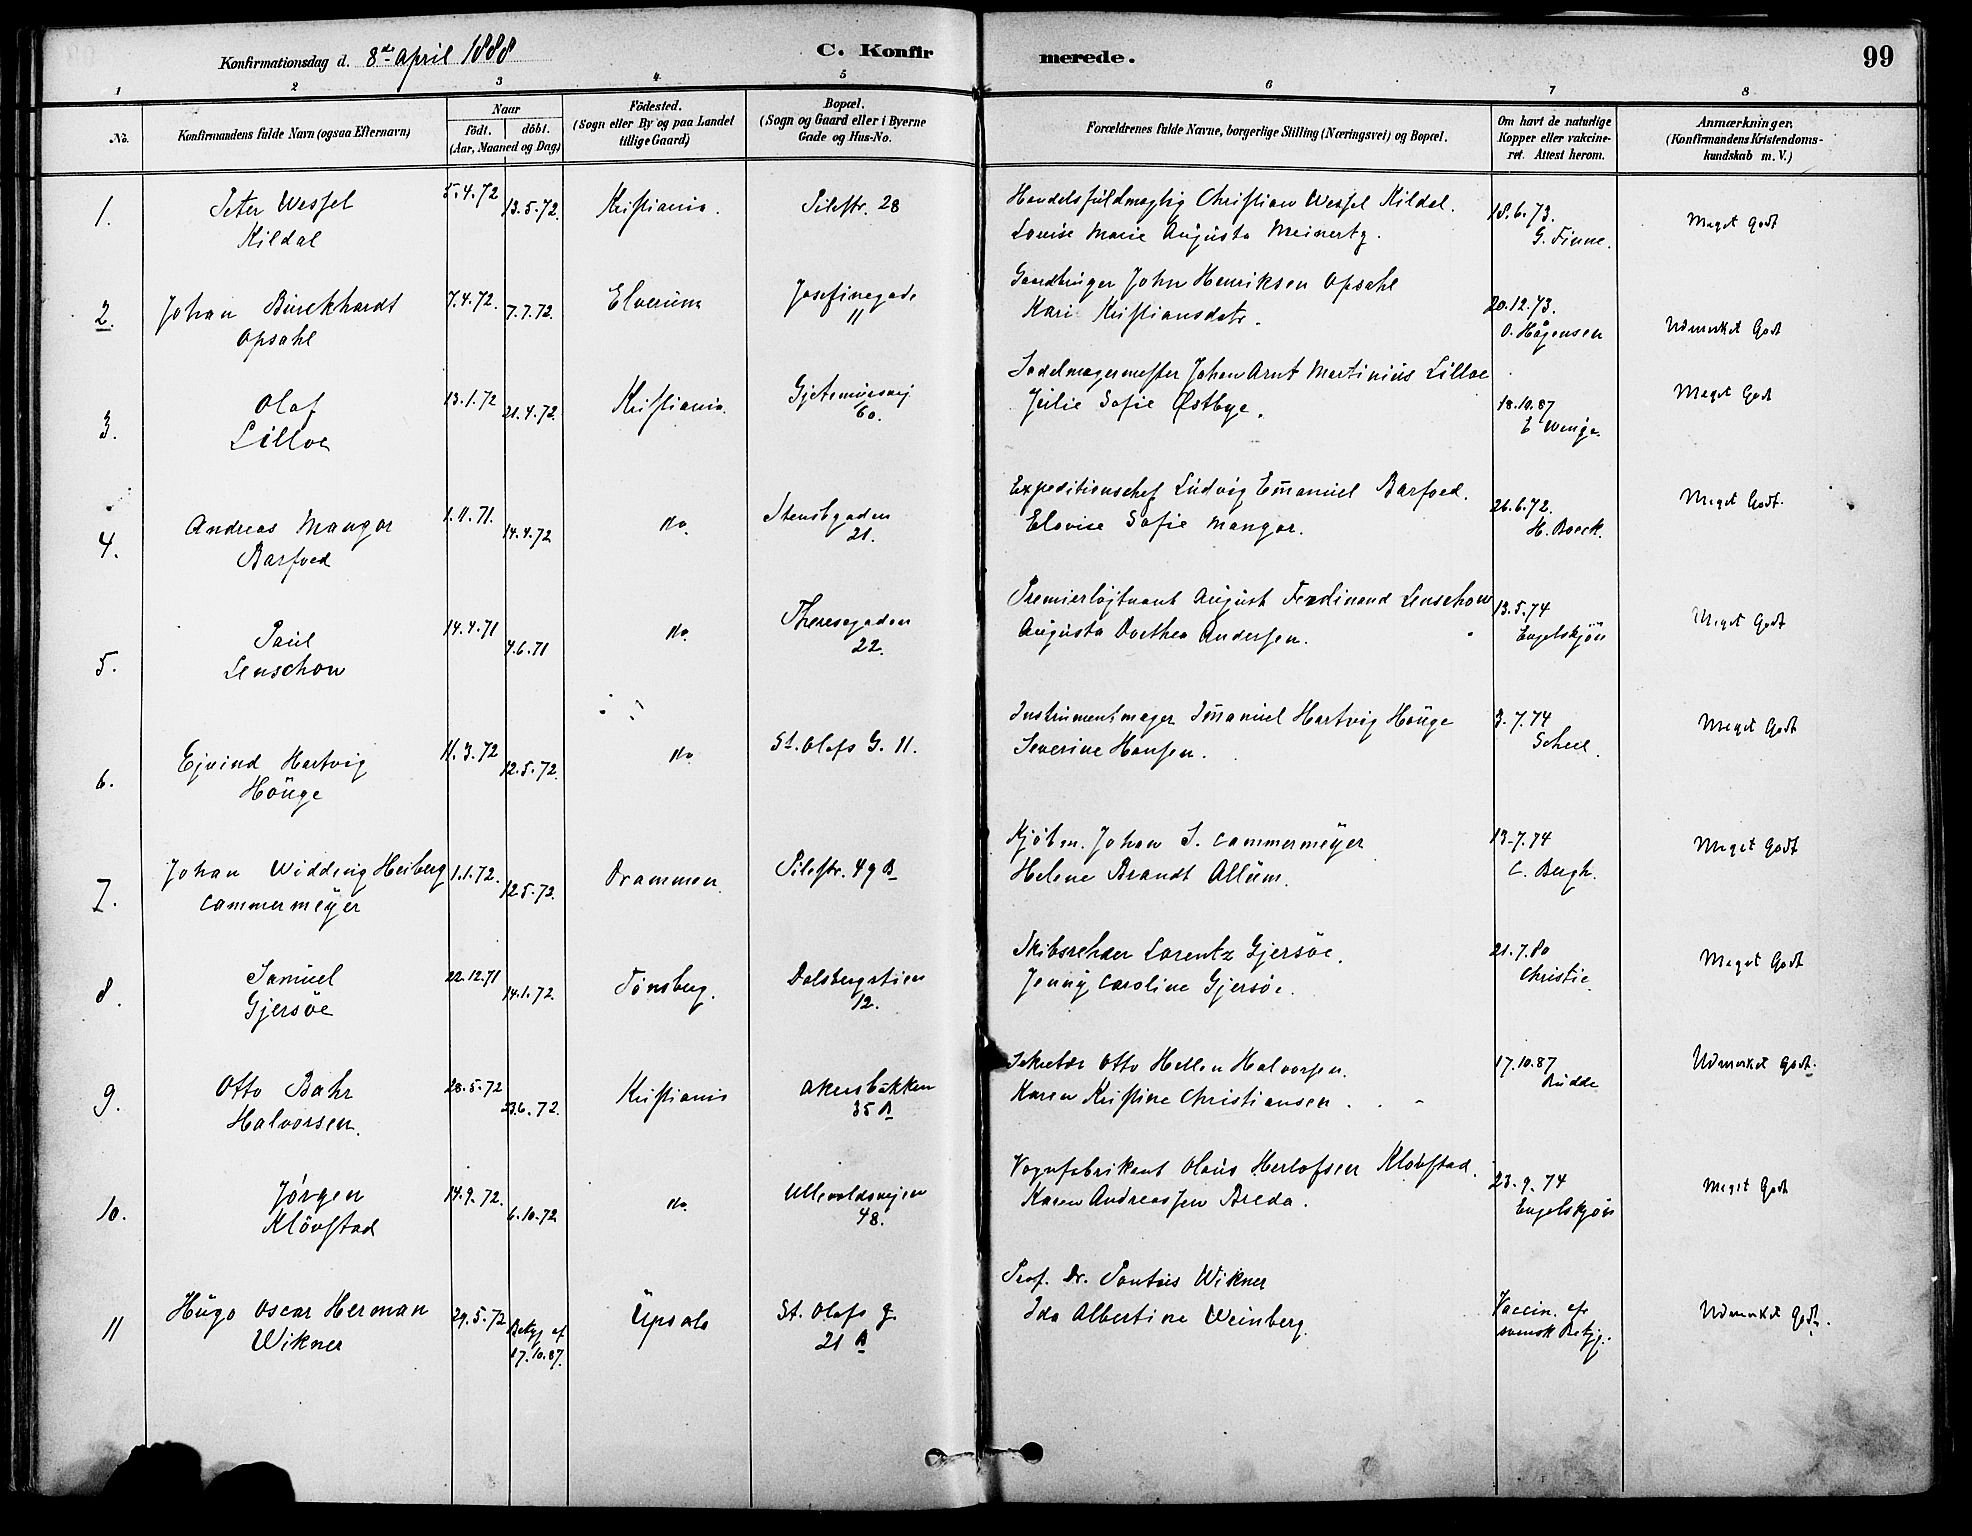 Konfirmationsdag d. 8de April 1888
C. Konfir merede.
99
1 2 3 4 5 6 7 8
No.
Konfirmandens fulde Navn (ogsaa Efternavn)
Naar
födt. döbt.
(Aar, Maaned og Dag)
Födested.
(Sogn eller By og paa Landet
tillige Gaard)
Bopæl.
(Sogn og Gaard eller i Byerne
Gade og Hus-No.
Forældrenes fulde Navne, borgerlige Stilling (Næringsvei) og Bopæl.
Om havt de naturlige
Kopper eller vakcine-
ret. Attest herom.
Anmærkninger.
(Konfirmandens Kristendoms-
kundskab m. V.)
1.
Peter Wessel
Kildal
5.4.72
13.5.72.
Kristiania.
Pilestr. 28
Handelsfuldmægtig Christian Wessel Kildal.
Louise Marie Augusta Meinertz.
18.6.73.
G. Finne.
Meget Godt
2.
Johan Burckhardt
Opsahl
7.4.72.
7.7.72.
Elverum
Josefinegade
11
Gaardbruger John Henriksen Opsahl
Kari Kristiansdatr.
20.12.73.
O. Hågensen
Udmerket Godt
3.
Olaf
Lilloe
13.1.72
21.4.72.
Kristiania.
Gjetemyrsvej
60.
Sadelmagermester Johan Arnt Martinius Lilloe
Julie Sofie Østbye.
18.10.87
E Wenge.
Meget Godt
4.
Andreas Mangor
Barfoed
1.11.71.
14.4.72
do.
Stensbgaden
21.
Expeditionschef Ludvig Emanuel Barfoed.
Elovise Sofie Mangor.
26.6.72.
H. Boeck.
Meget Godt.
5.
Paul
Lenschow
14.4.71
4.6.71
do.
Theresegaden
22.
Premierløjtnant August Ferdinand Lenschow
Augusta Dorthea Andersen.
13.5.74
Engelskjön
Meget Godt
6.
Ejvind Hartvig
Höuge
11.3.72
12.5.72.
do.
St. Olafs G. 11.
Instrumentmager Imanuel Hartvig Höuge
Severine Hansen.
3.7.74
Scheel.
Meget Godt
7.
Johan Widding Heiberg
Cammermeyer
1.1.72.
12.5.72.
Drammen.
Pilestr. 49 B
Kjöbm. Johan S. Cammermeyer
Helene Brandt Allum.
13.7.74
C. Bergh.
Meget Godt
8.
Samuel
Gjersöe
22.12.71
14.1.72.
Tönsberg.
Dalsbergstien
12.
Skibsreder Lorentz Gjersöe.
Jenny Caroline Gjersöe.
21.7.80
Christie.
Meget Godt
9.
Otto Bahr
Halvorsen.
28.5.72
23.6.72.
Kristiania
Akersbakken
35 B
Sekretær Otto Hellen Halvorsen.
Karen Kristine Christiansen.
17.10.87
Rudde
Udmerket Godt.
10.
Jörgen
Klövstad
14.9.72.
6.10.72
do.
Ullevoldsvejen
48.
Vognfabrikant Olaus Herlofsen Klövstad.
Karen Andreassen Breda.
23.9.74
Engelskjön
Meget Godt
11
Hugo Oscar Herman
Wikner
29.5.72
Betyg af
17.10.87.
Upsala
St. Olafs g.
21 B
Prof. Dr. Pontus Wikner
Ida Albertine Weinberg.
Vaccin. efr
svensk Betyg.
Udmerket Godt.